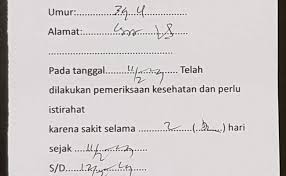 Umur:............39.4
Alamat:...........
..............................................
Pada tanggal.................. Telah
dilakukan pemeriksaan kesehatan dan perlu
istirahat
karena sakit selama ..........2........(........) hari
sejak ....................
S/D.....................